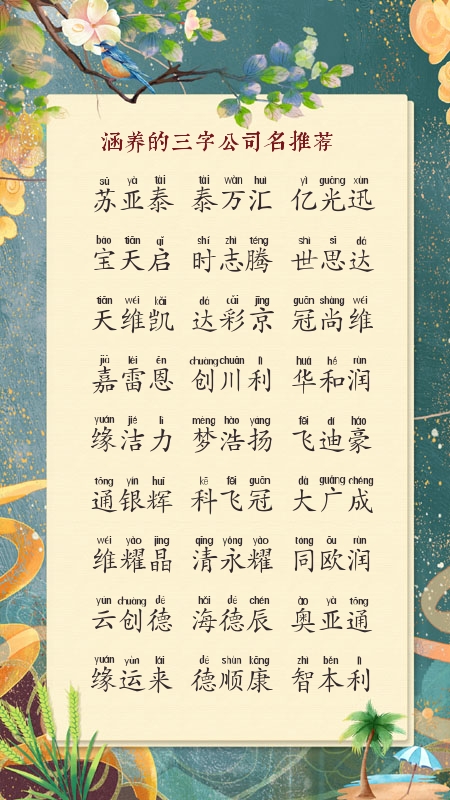 涵养的三字公司名推荐
sū yà tài tài wàn huì yì guāng xùn
苏亚泰 泰万汇 亿光迅
bǎo tiān qǐ shí zhì téng shì sī dá
宝天启 时志腾 世思达
tiān wéi kǎi dá cǎi jīng guān shàng wéi
天维凯 达彩京 冠尚维
jiā léi ēn chuàng chuān lì huá hé rùn
嘉雷恩 创川利 华和润
yuán jié lì mèng hào yáng fēi dí háo
缘洁力 梦浩扬 飞迪豪
tōng yín huī kē fēi guān dà guǎng chéng
通银辉 科飞冠 大广成
wéi yào jīng qīng yǒng yào tóng ōu rùn
维耀晶 清永耀 同欧润
yún chuàng dé hǎi dé chén ào yà tōng
云创德 海德辰 奥亚通
yuán yùn lái dé shùn kāng zhì běn lì
缘运来 德顺康 智本利